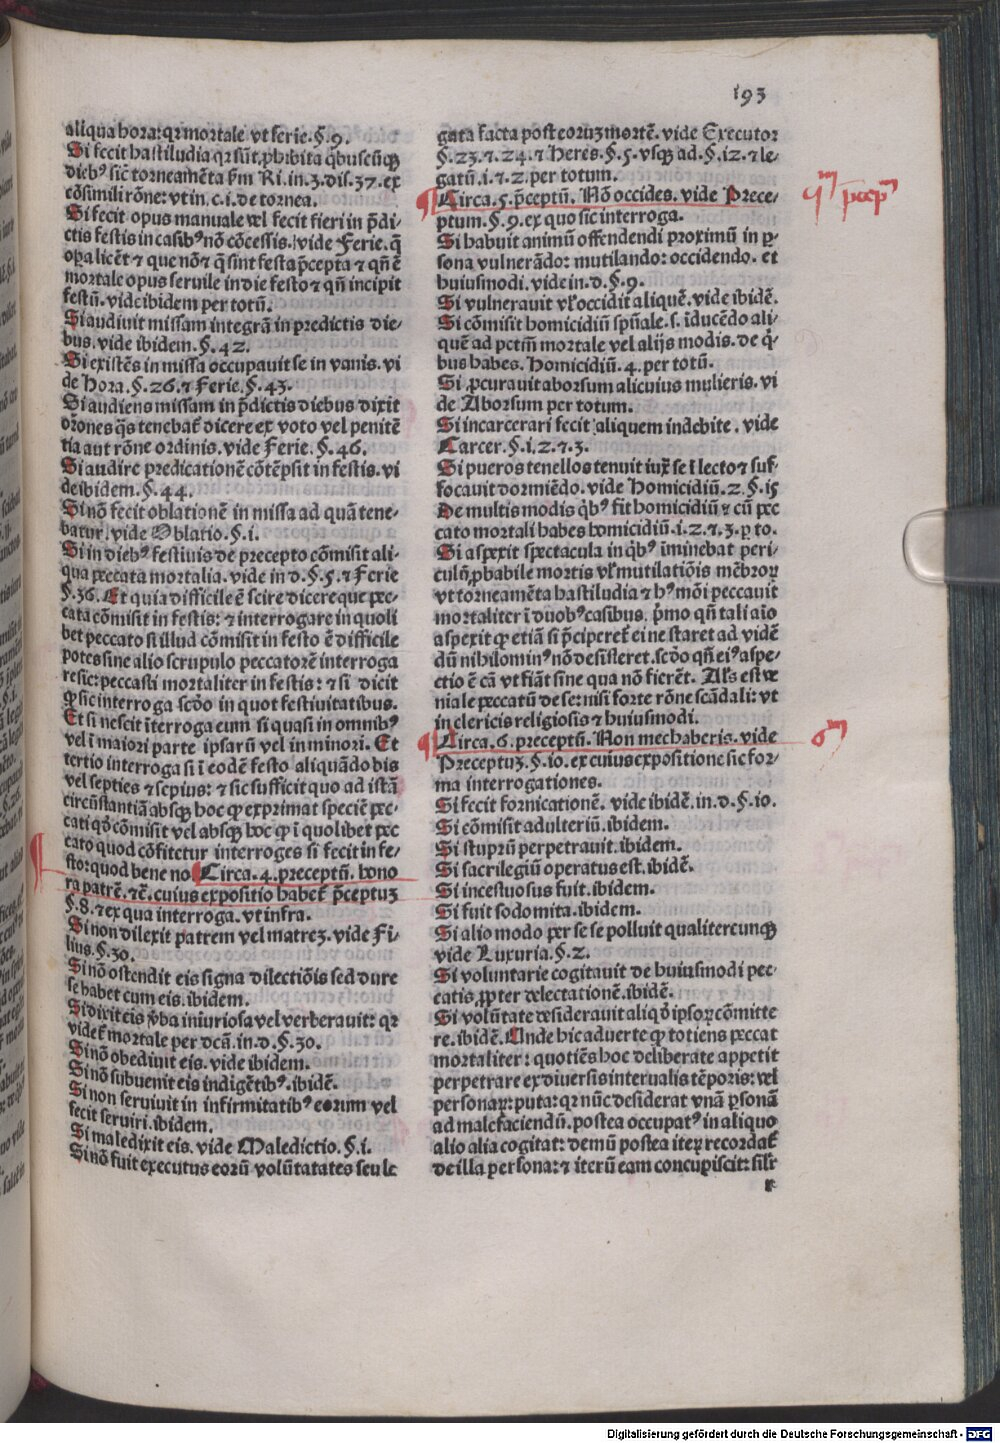 193
aliqua hora: qꝛ mortale vt ferie. §. 9.
Si fecit hastiludia qꝛ sūt ꝓhibita q̇buscūqꝫ
diebꝰ sic̄ torneamēta ẜm Ri. in. 3. dis. 37. ex
cōsimili rōne: vt in c. i. de tornea.
Si fecit opus manuale vel fecit fieri in p̄di-
ctis festis in casibꝰ nō cōcessis. vide Ferie. q̄
oꝑa licēt ⁊ que nō ⁊ q̄ sint festa p̄cepta ⁊ qn̄ ē
mortale opus seruile in die festo ⁊ qn̄ incipit
festū. vide ibidem per totū.
Si audiuit missam integrā in predictis die-
bus. vide ibidem. §. 42.
Si existēs in missa occupauit se in vanis. vi
de Hora. §. 26. ⁊ Ferie. §. 43.
Si audiens missam in p̄dictis diebus dixit
orōnes q̄s tenebat᷑ dicere ex voto vel penitē
tia aut rōne ordinis. vide Ferie. §. 46.
Si audire predicationē cōtēpsit in festis. vi
de ibidem. §. 44.
Si nō fecit oblationē in missa ad quā tene-
batur. vide Oblatio. §. i.
Si in diebꝰ festiuis de precepto cōmisit ali-
qua peccata mortalia. vide in d. §. 5. ⁊ Ferie
§. 36. Et quia difficile ē scire dicere que pec-
cata cōmisit in festis: ⁊ interrogare in quoli
bet peccato si illud cōmisit in festo ē difficile
potes sine alio scrupulo peccatorē interroga
re sic: peccasti mortaliter in festis: ⁊ si dicit
ꝙ sic interroga scd̄o in quot festiuitatibus.
Et si nescit īterroga eum si quasi in omnibꝰ
vel ī maiori parte ipsarū vel in minori. Et
tertio interroga si ī eodē festo aliquādo bis
vel septies ⁊ sepius: ⁊ sic sufficit quo ad istā
circūstantiā absqꝫ hoc ꝙ exprimat speciē pec-
cati qd̄ cōmisit vel absqꝫ hoc ꝙ ī quolibet pec
cato quod cōfitetur interroges si fecit in fe-
sto: quod bene no. Circa. 4. preceptū. hono
ra patrē. ⁊c̄. cuius expositio habet᷑ p̄ceptuꝫ
§. 8. ⁊ ex qua interroga. vt infra.
Si non dilexit patrem vel matreꝫ. vide Fi-
lius. §. 30.
Si nō ostendit eis signa dilectiōis sed dure
se habet cum eis. ibidem.
Si dixit eis v̄ba iniuriosa vel verberauit: qꝛ
videt᷑ mortale per dcā. in. d. §. 30.
Si nō obediuit eis. vide ibidem.
Si nō subuenit eis indigētibꝰ. ibidē.
Si non seruiuit in infirmitatibꝰ eorum vel
fecit seruiri. ibidem.
Si maledixit eis. vide Maledictio. §. i.
Si nō fuit executus eorū volūtates seu le
gata facta post eoruꝫ mortē. vide Executor
§. 23. ⁊. 24. ⁊ Heres. §. 5. vsqꝫ ad. §. i2. ⁊ le-
gatū. i. ⁊. 2. per totum.
Circa. 5. p̄ceptū. Nō occides. vide Prece-
ptum. §. 9. ex quo sic interroga.
Si habuit animū offendendi proximū in ꝑ-
sona vulnerādo: mutilando: occidendo. et
huiusmodi. vide in. d. §. 9.
Si vulnerauit vl̓ occidit aliquē. vide ibidē.
Si cōmisit homicidiū spūale. s. īducēdo ali-
quē ad pctm̄ mortale vel alijs modis. de q̇-
bus habes. Homicidiū. 4. per totū.
Si ꝓcurauit aborsum alicuius mulieris. vi
de Aborsum per totum.
Si incarcerari fecit aliquem indebite. vide
Carcer. §. i. 2. ⁊. 3.
Si pueros tenellos tenuit iux̄ se ī lecto ⁊ suf-
focauit dormiēdo. vide Homicidiū. 2. §. i5
De multis modis q̇bꝰ fit homicidiū ⁊ cū pec
cato mortali habes homicidiū. i. 2. ⁊. 3. ꝑ to.
Si aspexit spectacula in q̇bꝰ iminebat peri-
culū ꝓbabile mortis vl̓ mutilatiōis mēbroꝝ
vt torneamēta hastiludia ⁊ hꝰmōi peccauit
mortaliter ī duobꝰ casibus. p̄mo qn̄ tali aīo
aspexit ꝙ etiā si p̄ciperet᷑ ei ne staret ad vidē
dū nihilominꝰ nō desisteret. scd̄o qn̄ eiꝰ aspe-
ctio ē cā vt fiāt sine qua nō fierēt. Al̓s est ve
niale peccatū de se: nisi forte rōne scādali: vt
in clericis religiosis ⁊ huiusmodi.
Circa. 6. preceptū. Non mechaberis. vide
Preceptuꝫ. §. io. ex cuius expositione sic for-
ma interrogationes.
Si fecit fornicationē. vide ibidē. in. d. §. io.
Si cōmisit adulteriū. ibidem.
Si stuprū perpetrauit. ibidem.
Si sacrilegiū operatus est. ibidē.
Si incestuosus fuit. ibidem.
Si fuit sodomita. ibidem.
Si alio modo per se se polluit qualitercunqꝫ
vide Luxuria. §. 2.
Si voluntarie cogitauit de huiusmodi pec-
catis ꝓpter delectationē. ibidē.
Si volūtate desiderauit aliqd̓ ipsoꝝ cōmitte
re. ibidē. Unde hic aduerte ꝙ totiens peccat
mortaliter: quotiēs hoc deliberate appetit
perpetrare ex diuersis interualis tēporis: vel
personaꝝ: puta: qꝛ nūc desiderat vnā ꝑsonā
ad malefaciendū. postea occupatꝰ in aliquo
alio alia cogitat: demū postea iteꝝ recordat᷑
de illa persona: ⁊ iterū eam concupiscit: sil̓r
r
Digitalisierung gefördert durch die Deutsche Forschungsgemeinschaft - DFG